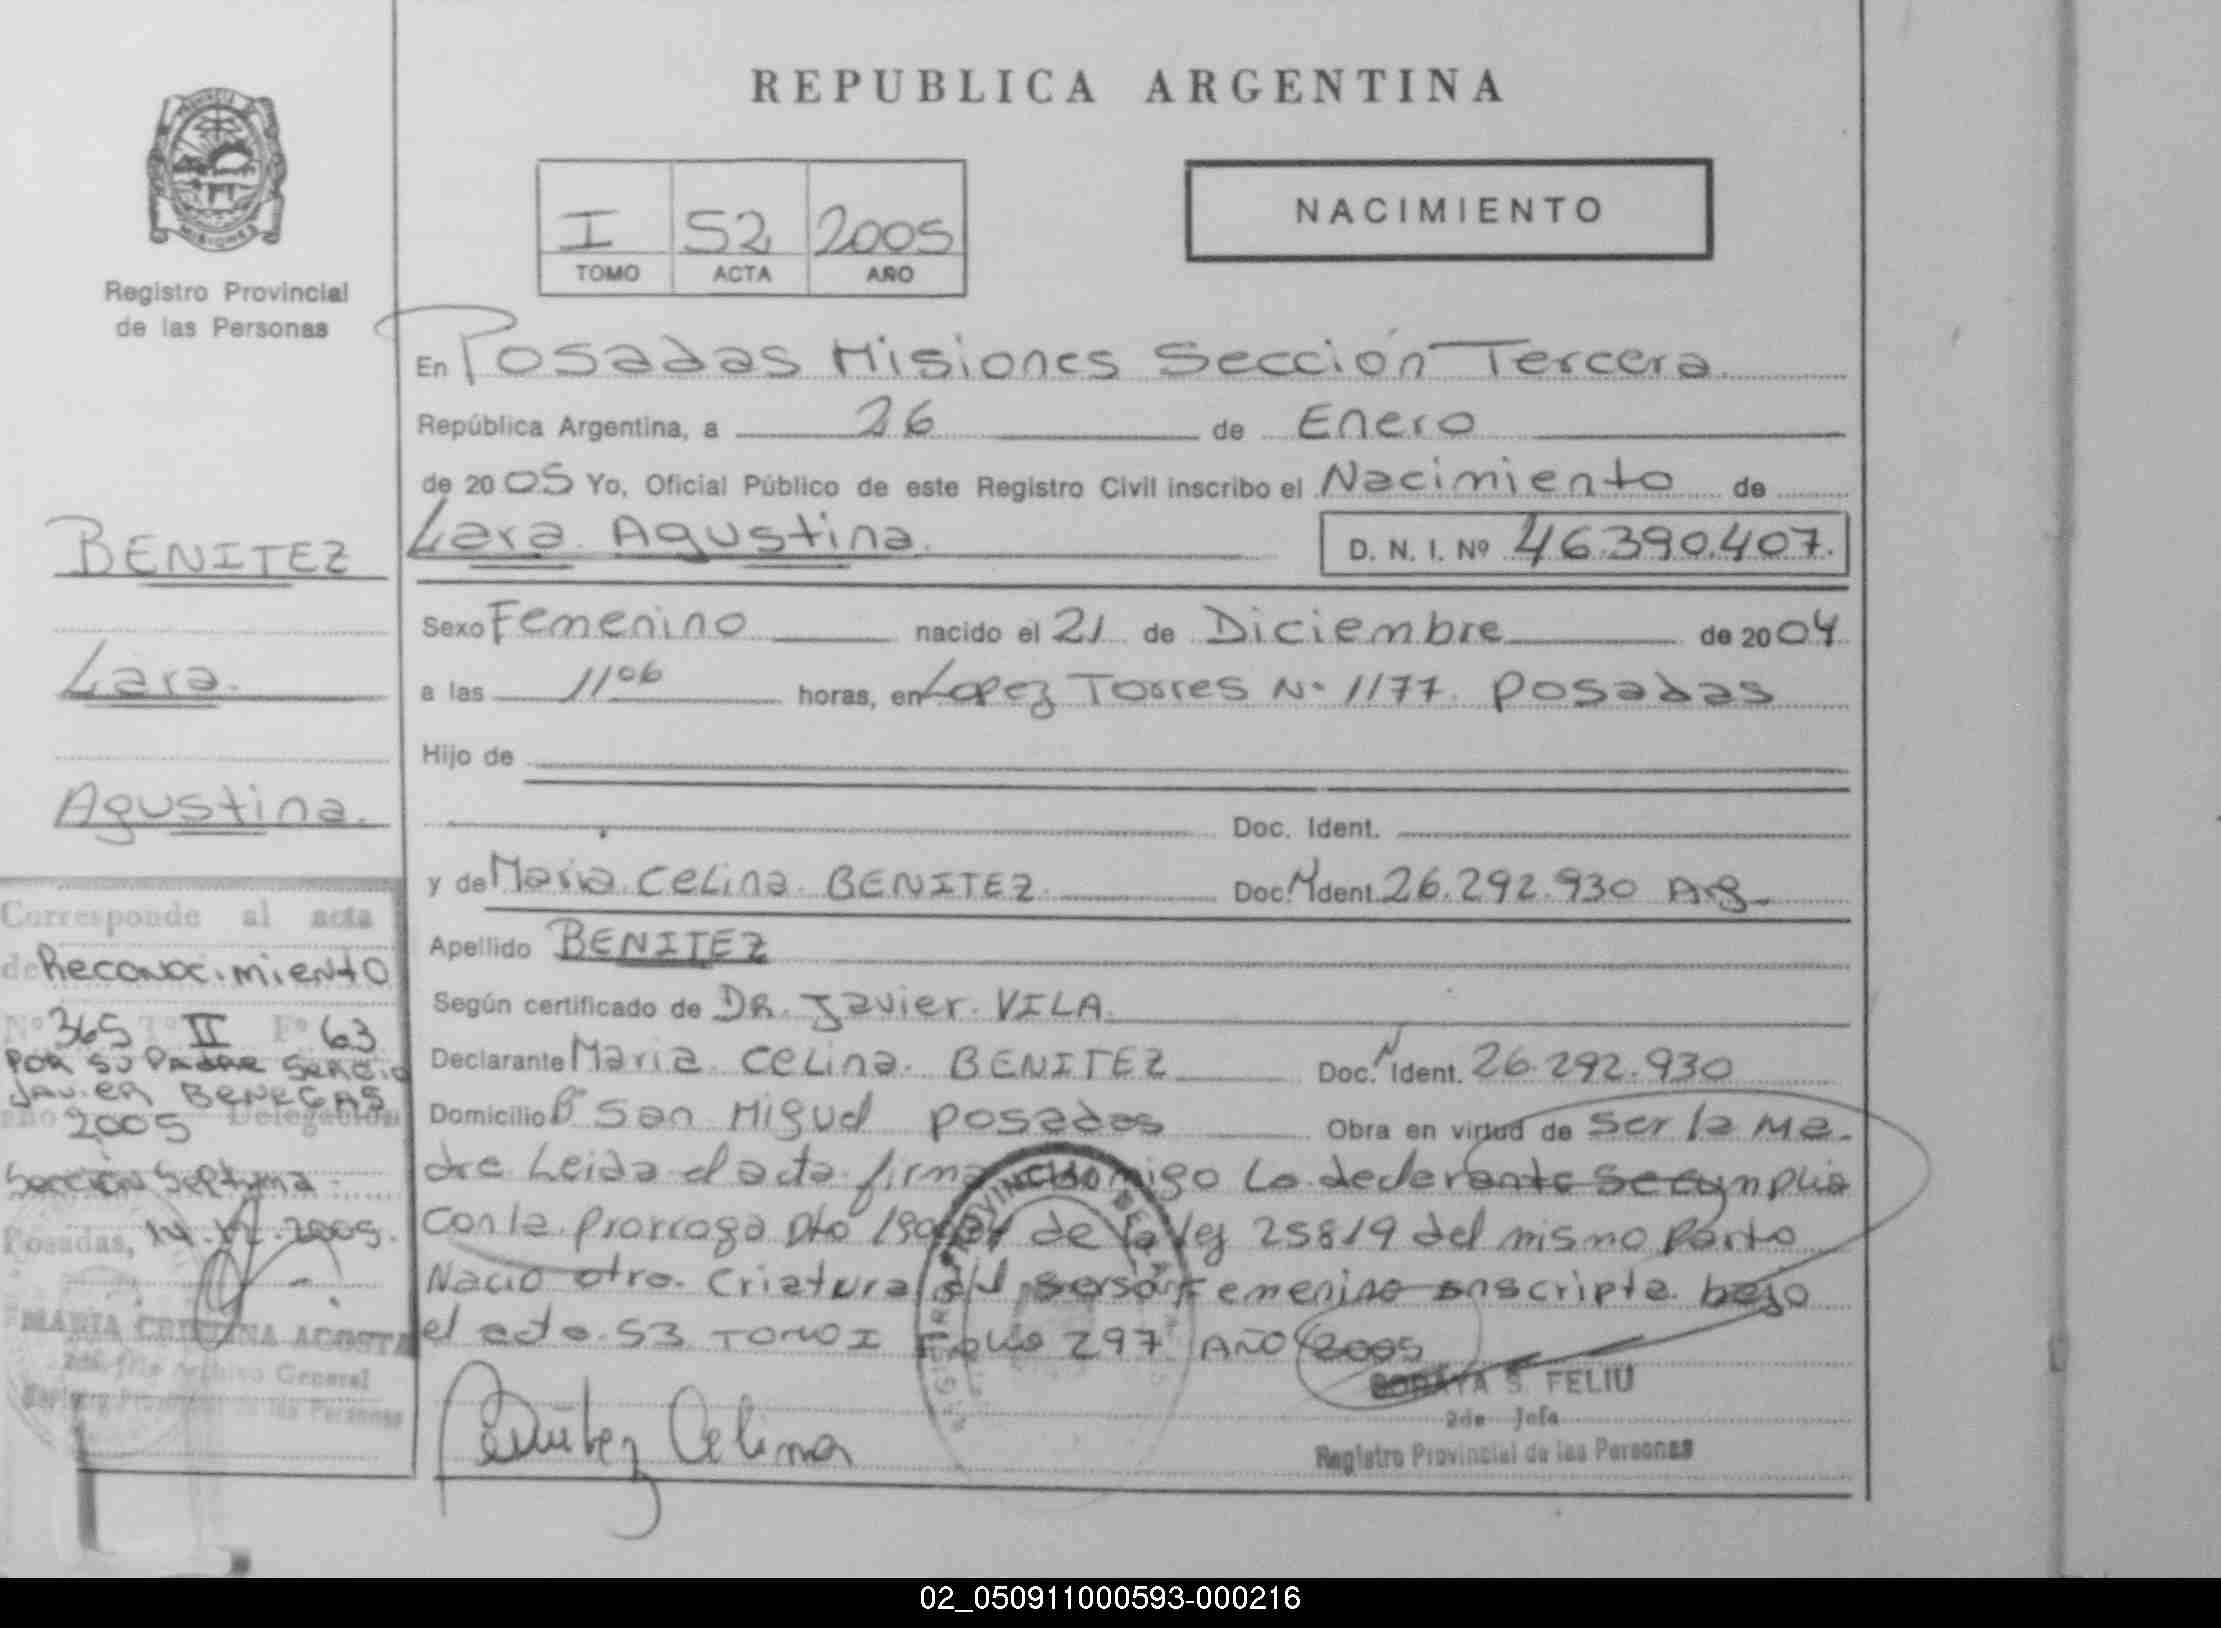 REPUBLICA ARGENTINA
PROVINCIA DE
MISIONES
Registro Provincial
de las Personas
I S2 2005
TOMO ACTA AÑO
NACIMIENTO
En Posadas Misiones Sección Tercera
República Argentina, a 26 de Enero
de 2005 Yo, Oficial Público de este Registro Civil inscribo el Nacimiento de
Lara Agustina. D. N. I. Nº 46.390.407.
Sexo Femenino nacido el 21 de Diciembre de 2004
a las 11 06 horas, en Lopez Torres Nº 1177. Posadas
Hijo de
Doc. Ident.
y de Maria Celina BENITEZ Doc. N Ident. 26.292.930 Arg
Apellido BENITEZ
Según certificado de DR. Javier VILA
Declarante Maria Celina BENITEZ Doc. N Ident. 26.292.930
Domicilio Bº San Miguel Posadas Obra en virtud de Ser la Ma-
dre Leida el acta firma conmigo La declarante Se cumplio
Con la Prorroga Dto de la ley 25819 del mismo Parto
Nacio otra Criatura del Femenino inscripta bajo
el acta 53 TOMO I Folio 297 AÑO 2005
Benitez Celina
SORAYA S. FELIU
2da Jefa
Registro Provincial de las Personas
BENITEZ
Lara.
Agustina.
Corresponde al acta
de Reconocimiento
Nº 365 Tº II Fº 63
POR SU PADRE SERGIO
JAVIER BENEGAS
año 2005 Delegación
Sección Septima
Posadas, 14.12.2005.
MARIA CRISTINA ACOSTA
Archivo General
Registro Provincial de las Personas
02_050911000593-000216